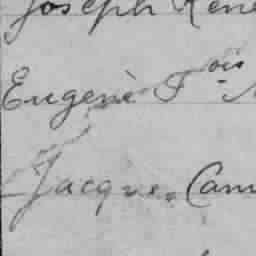 Joseph René
Eugenè Fois
Jacque. Cam